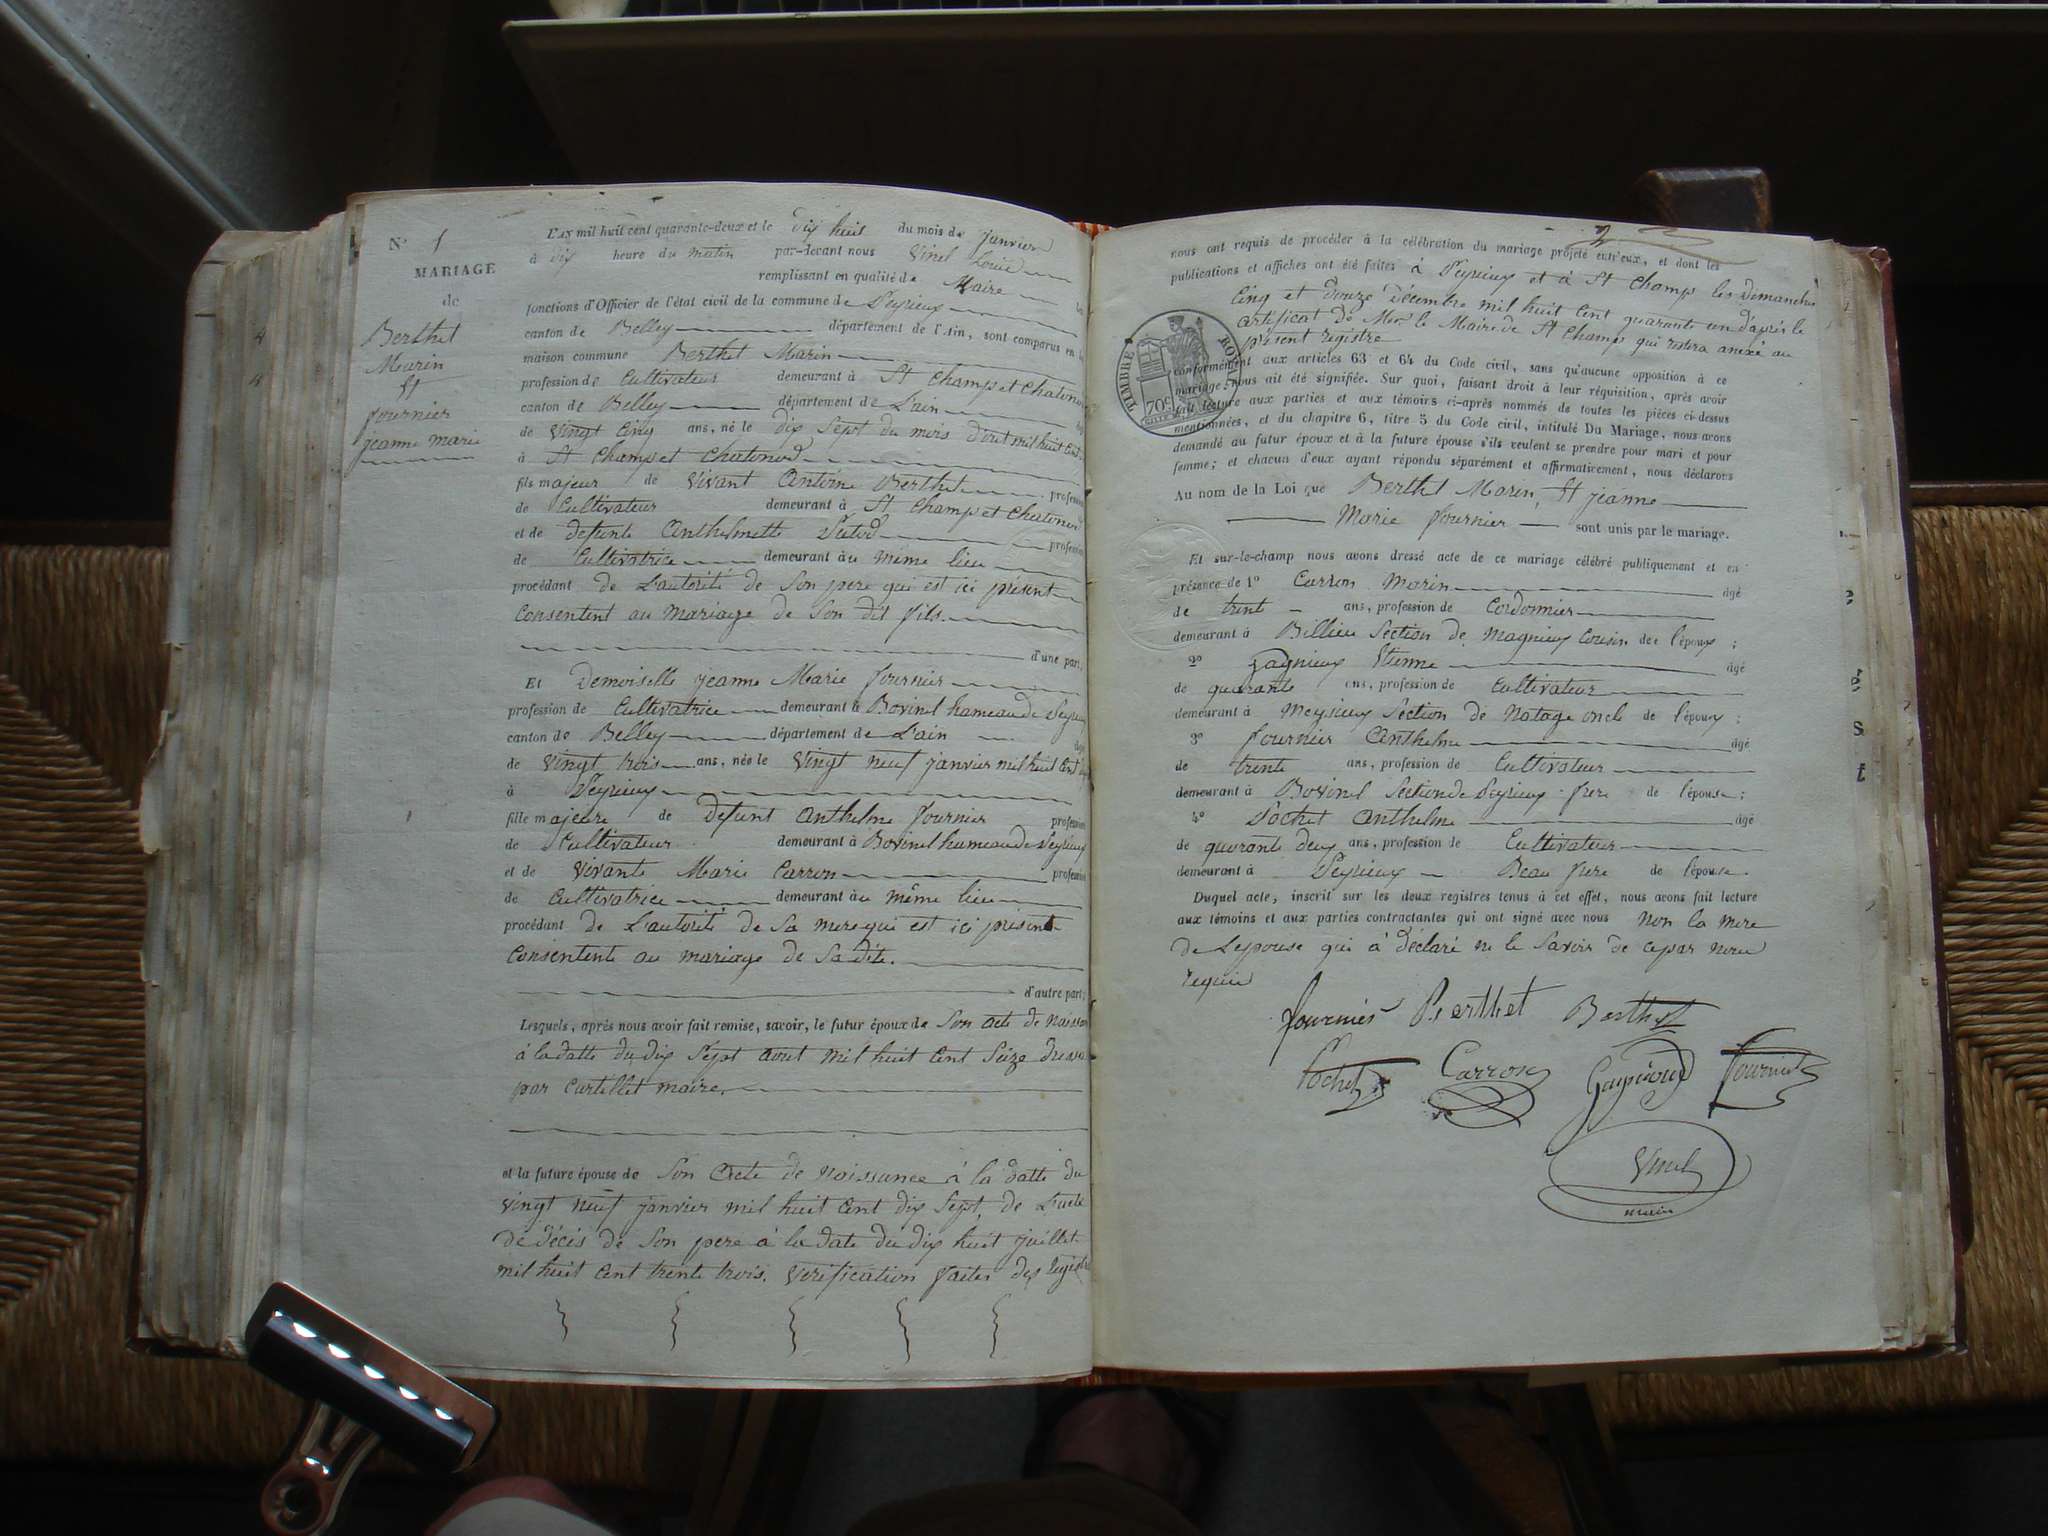 N° 1
MARIAGE
de
Berthet
Marin
Et
fournier
jeanne marie
L'AN mil huit cent quarante-deux et le dix huit du mois de janvier
à dix heure du matin par-devant nous Vinel Louis
remplissant en qualité de Maire les
fonctions d'Officier de l'état civil de la commune de Peyrieux
canton de Belley département de l'Ain, sont comparus en la
maison commune Berthet Marin
profession de Cultivateur demeurant à St Champ et Chatonod
canton de Belley département de L'ain
de vingt cinq ans, né le dix sept du mois d'out mil huit cent
à St Champ et Chatonod
fils majeur de vivant Antoine Berthet profession
de Cultivateur demeurant à St Champ et Chatonod
et de defunte Anthelmette profession
de Cultivatrice demeurant au même lieu
procédant de L'autorité de Son pere qui est ici présent
Consentent au mariage de Son dit fils.
d'une part;
Et Demoiselle jeanne Marie fournier
profession de Cultivatrice demeurant à Bovinel hameau de Peyrieux
canton de Belley département de L'ain âgé
de vingt trois ans, née le vingt neuf janvier mil huit cent
à Peyrieux
fille majeure de Defunt Anthelme fournier profession
de Cultivateur demeurant à Bovinel hameau de Peyrieux
et de vivante Marie Carron profession
de Cultivatrice demeurant au même lieu
procédant de L'autorité de Sa mere qui est ici présent
Consentente au mariage de Sa dite.
d'autre part;
Lesquels, après nous avoir fait remise, savoir, le futur époux de Son acte de naissan
à la datte du dix Sept aout mil huit Cent Seize dressé
par Curtillet maire.
et la future épouse de Son Acte de Naissance à la datte du
vingt neuf janvier mil huit Cent dix Sept, de L'acte
de décis de Son pere à la date du dix huit juillet
mil huit Cent trente trois. Vérification faites des Registre
2
nous ont requis de procéder à la célébration du mariage projeté entr'eux, et dont les
publications et affiches ont été faites à Peyrieux et à St Champ les Dimanche
Cinq et douze Décembre mil huit Cent quarante un d'après le
Certificat de Mor le Maire de St Champ qui restera anéxé au
présent registre
TIMBRE ROYAL
70c
conformément aux articles 63 et 64 du Code civil, sans qu'aucune opposition à ce
mariage nous ait été signifiée. Sur quoi, faisant droit à leur réquisition, après avoir
fait lecture aux parties et aux témoins ci-après nommés de toutes les pièces ci-dessus
mentionnées, et du chapitre 6, titre 5 du Code civil, intitulé Du Mariage, nous avons
demandé au futur époux et à la future épouse s'ils veulent se prendre pour mari et pour
femme; et chacun d'eux ayant répondu séparément et affirmativement, nous déclarons
Au nom de la Loi que Berthet Marin, Et jeanne
Marie fournier sont unis par le mariage.
Et sur-le-champ nous avons dressé acte de ce mariage célébré publiquement et en
présence de 1° Carron Marin âgé
de trente ans, profession de Cordonnier
demeurant à Billieu Section de Magnieux Cousin de l'époux;
2° Gagnieux Etienne âgé
de quarante ans, profession de Cultivateur
demeurant à Meyrieux Section de Natage oncle de l'époux;
3° fournier Anthelme âgé
de trente ans, profession de Cultivateur
demeurant à Bovinel Section de Peyrieux frere de l'épouse;
4° Pochet Anthelme âgé
de quarante deux ans, profession de Cultivateur
demeurant à Peyrieux Beau frere de l'épouse.
Duquel acte, inscrit sur les deux registres tenus à cet effet, nous avons fait lecture
aux témoins et aux parties contractantes qui ont signé avec nous Non la mere
de Lepouse qui à déclaré ne le Savoir de ce par nous
requise
fournier Berthet Berthet
Pochet Carron Gagnieux fournier
Vinel
maire